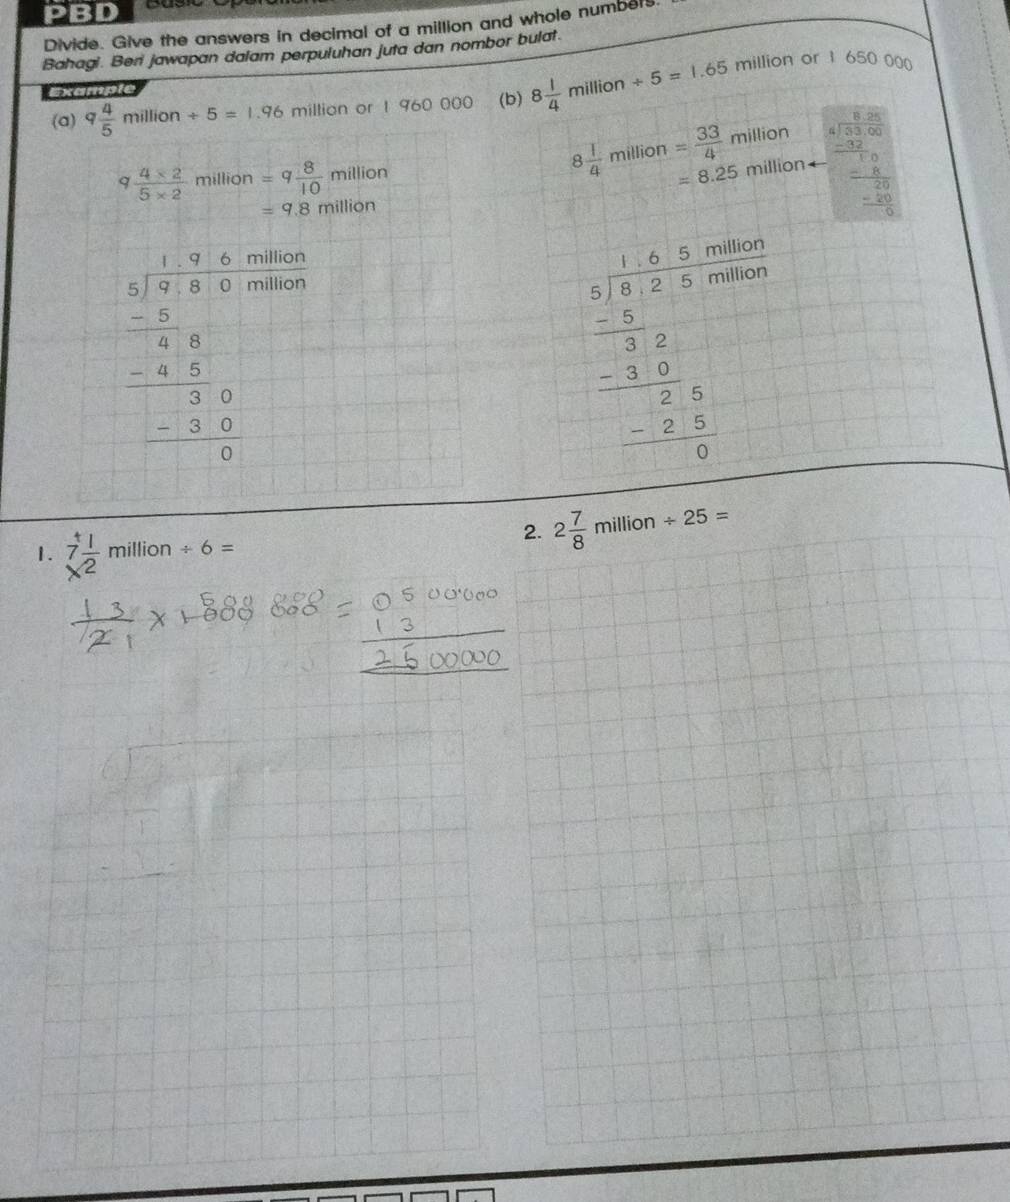 PBD
Divide. Give the answers in decimal of a million and whole numbers.
Bahagi. Beri jawapan dalam perpuluhan juta dan nombor bulat.
Example
(a) 9 4/5 million ÷ 5 = 1.96 million or 1 960 000
9 4 × 2 / 5 × 2 million = 9 8/10 million
= 9.8 million
1 . 9 6 million
5 ) 9 . 8 0 million
- 5
4 8
- 4 5
3 0
- 3 0
0
(b) 8 1/4 million ÷ 5 = 1.65 million or 1 650 000
8 1/4 million = 33/4 million
= 8.25 million ←
8.25
4 ) 33.00
- 32
1 0
- 8
20
- 20
0
1 . 6 5 million
5 ) 8 . 2 5 million
- 5
3 2
- 3 0
2 5
- 2 5
0
1. 7 1/2 million ÷ 6 =
+
×
13/2 1 ×
= 0 5 00000
1 3
2 5 00000
6 )
2. 2 7/8 million ÷ 25 =